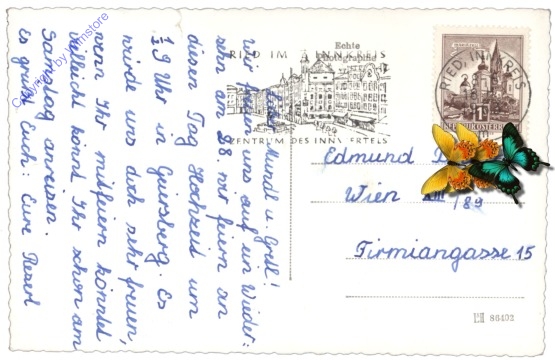 Liebe Mundl u. Gretl!
Wir freuen uns auf ein Wieder:
sehn am 28. wir feiern an
diesen Tag Hochzeit um
1/2 9 Uhr in Gurtsberg. Es
würde uns doch sehr freuen,
wenn Ihr mitfeiern könntet
vielleicht könnt Ihr schon am
Samstag anreisen.
Es grüßt Euch: Eure Reserl
Echte
Photographie
RIED IM INNKREIS
ZENTRUM DES INNVIERTELS
RIED, INNKREIS
REPUBLIK ÖSTERREICH
Edmund
Wien XIII/89
Firmiangasse 15
86402
Copyright by